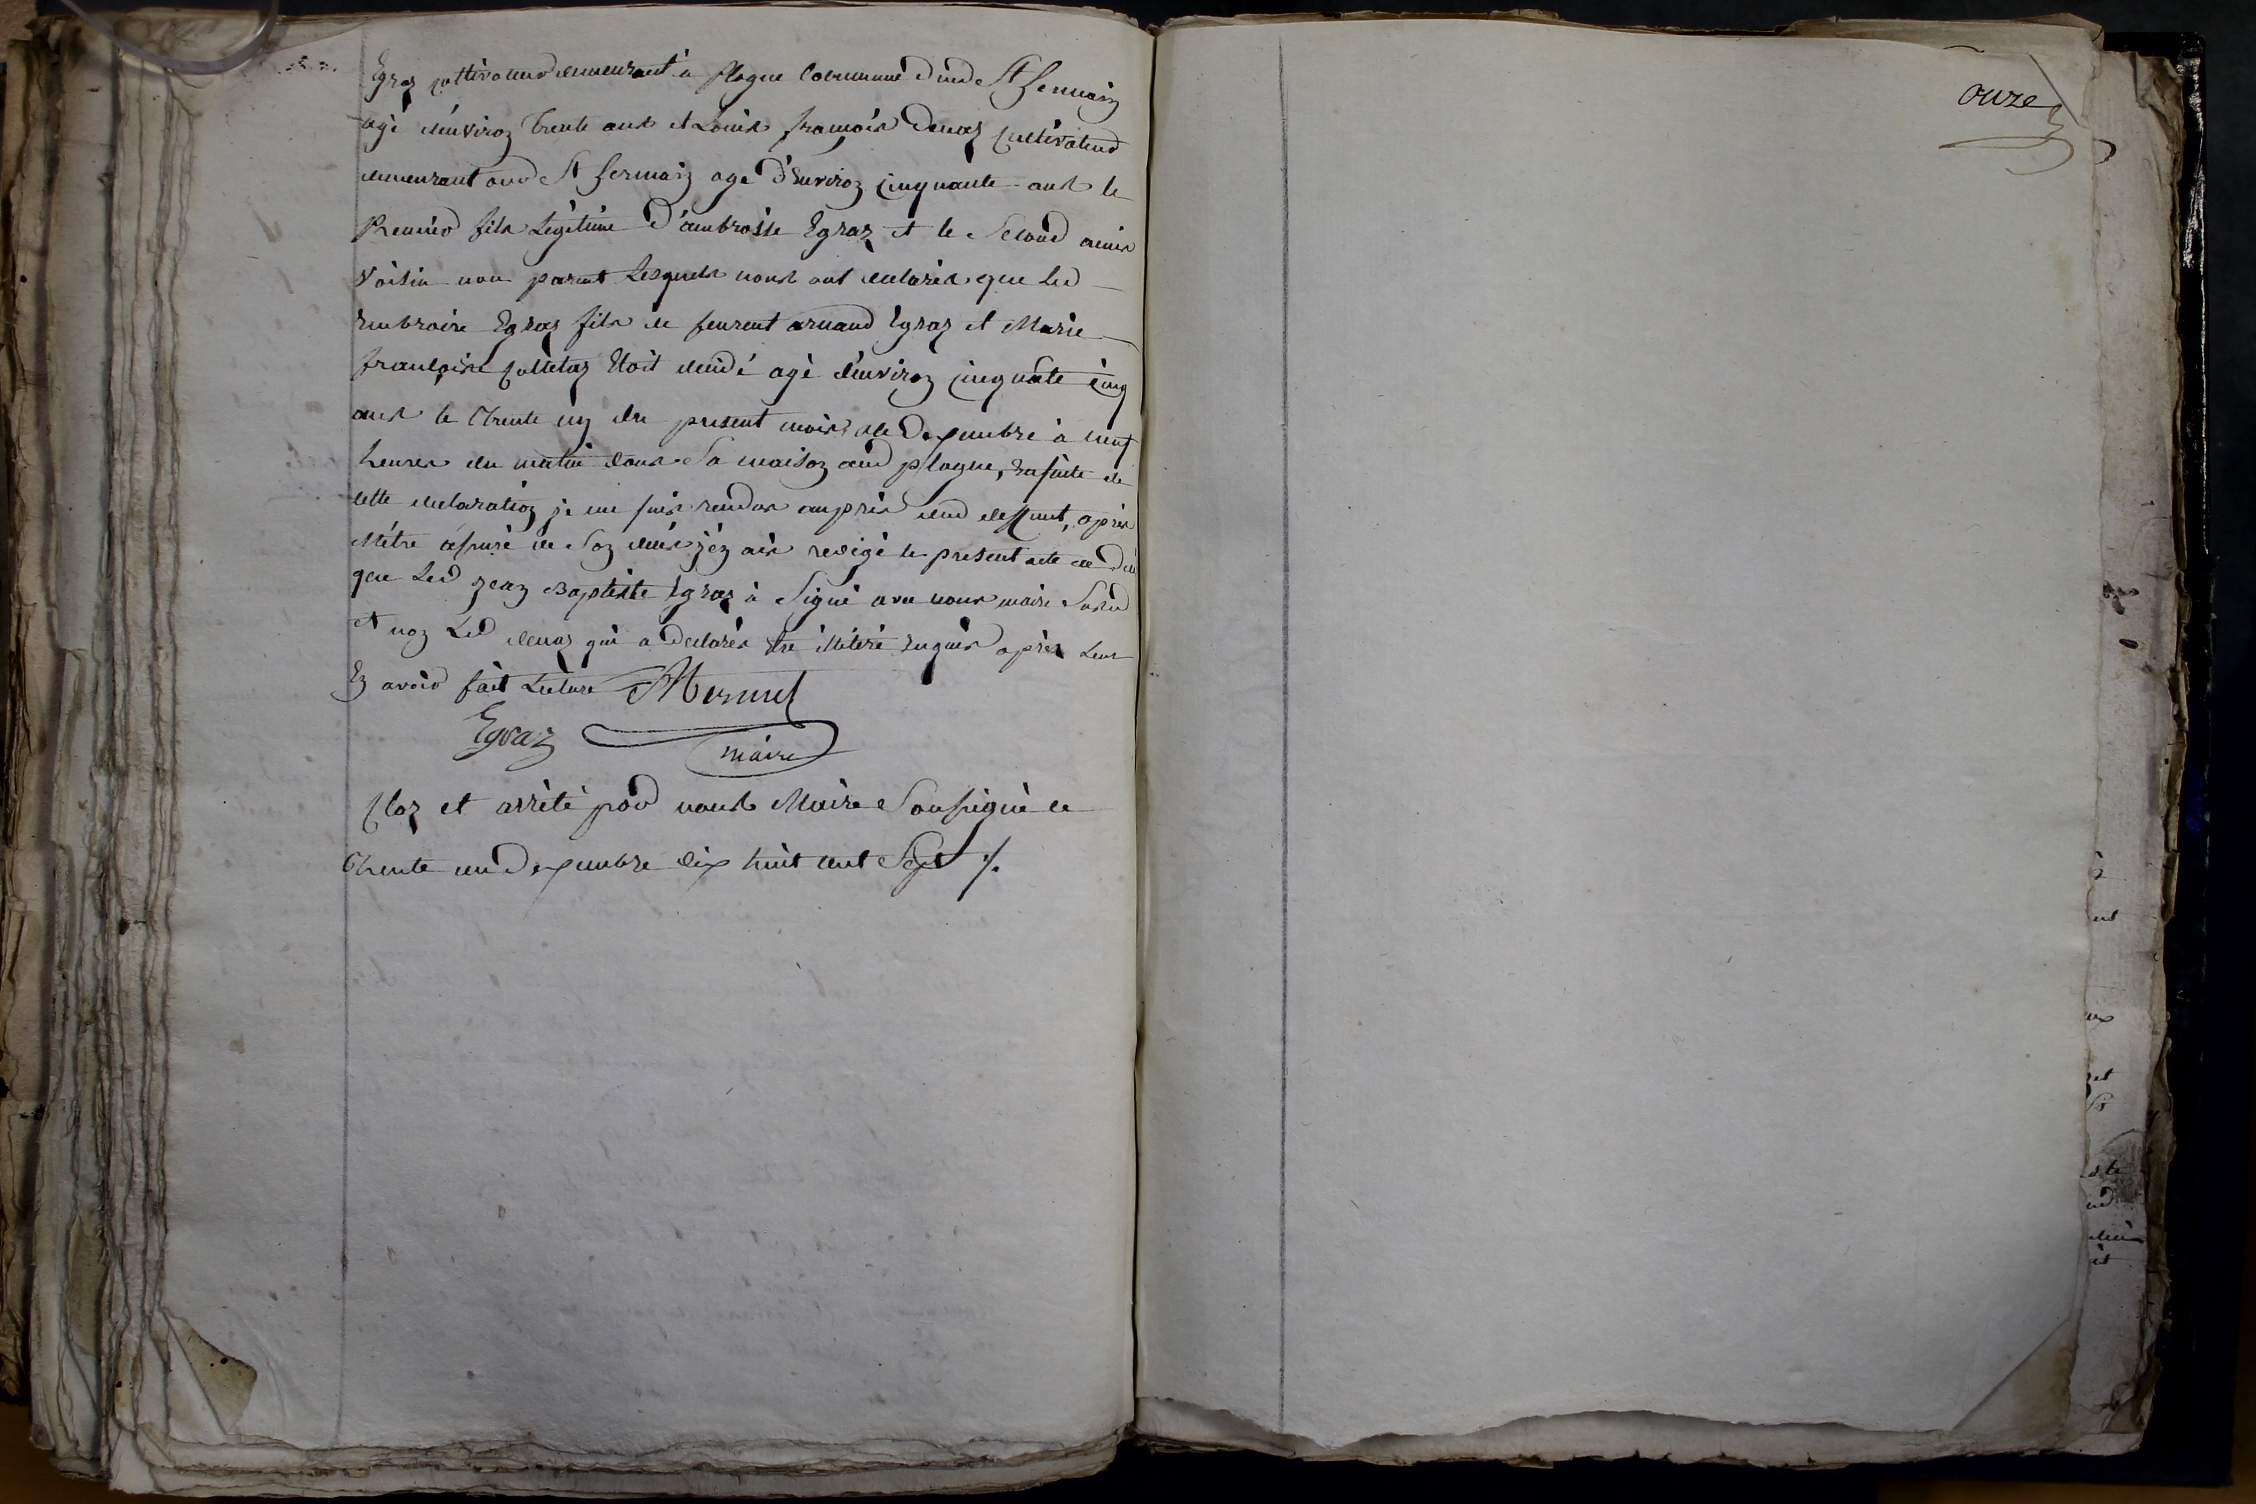 Egraz cultivateur demeurant à Plagne Commune dud St Germain
agé d'environ trente ans et Louis françois Denaz cultivateur
demeurant aud St Germain agé d'environ cinquante ans le
Premier fils Légitime d'ambroise Egraz et le Second amis
Voisin non parent Lesquels nous ont declarés que Led
Embroise Egraz fils de feurent arnaud Egraz et Marie
françoise Colletaz Etoit decidé agé d'environ cinquate cinq
ans le trente un du present mois de Dexembre à neuf
heures du matin dans Sa maison aud plagne, Ensuite de
cette declaration je me suis rendus auprès dud deffunt, après
M'être assuré de Son decés j'en ais redigé le present acte de dé
que Led Jean Baptiste Egraz à Signé avec nous maire Susd
et non Led denaz qui a declarés être illiteré Enquis après Leur
En avoir fait Lecture
Egraz
maire
Clos et arrêté par nous Maire Soussigné le
trente un dexembre dix huit cent Sept ./.
onze